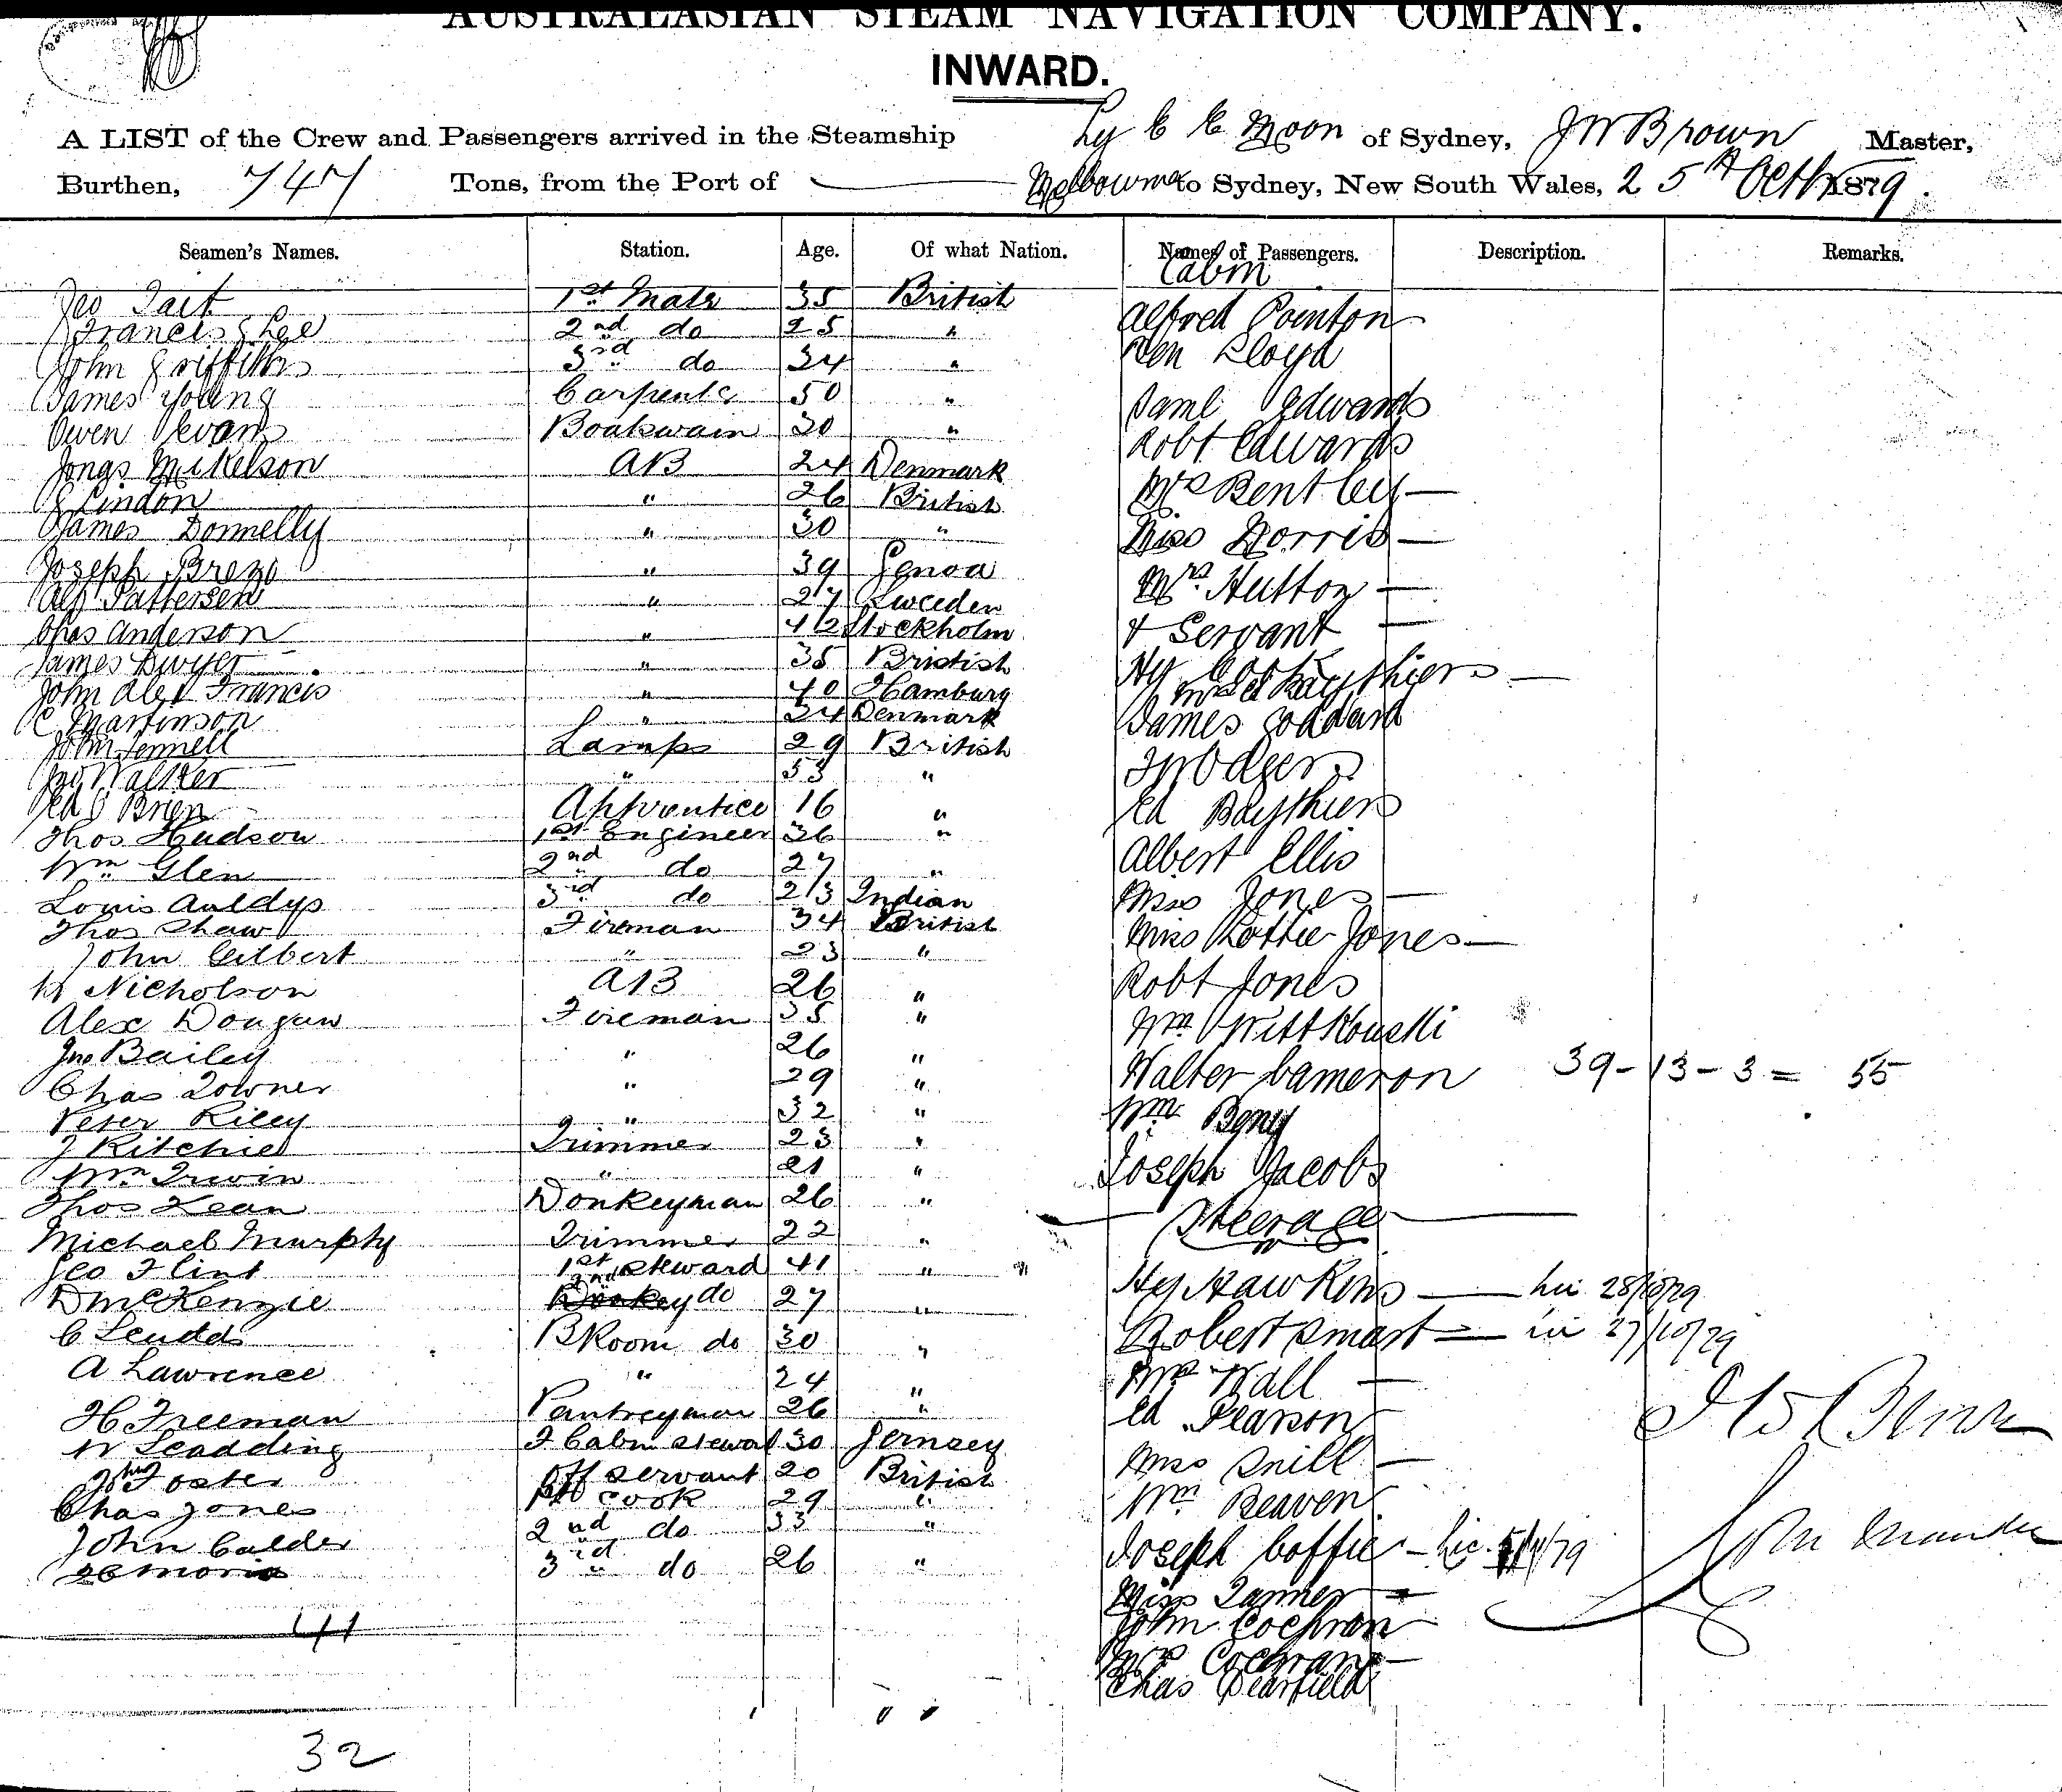 AUSTRALASIAN STEAM NAVIGATION COMPANY.
INWARD.
A LIST of the Crew and Passengers arrived in the Steamship Ly E E Moon of Sydney, J W Brown Master,
Burthen, 747 Tons, from the Port of Melbourne to Sydney, New South Wales, 25th Octbr 1879.
Seamen's Names. Station. Age. Of what Nation. Names of Passengers. Description. Remarks.
Cabin
Geo Tait 1st Mate 35 British Alfred Pointon
Francis Lee 2nd do 25 " Lloyd
John Griffiths 3rd do 34 "
James Young Carpenter 50 " Saml Edwards
Owen Evans Boatswain 30 " Robt Edwards
Jongs Mikelson AB 24 Denmark Mrs Bentley —
Lindon " 26 British
James Donnelly " 30 " Miss Norris —
Joseph " 39 Genoa Mrs Hutton —
Alf Pattersen " 27 Sweeden
Chas Anderson " 42 Stockholm & Servant —
James Dwyer " 35 Bristish Hy —
John Alex Francis " 40 Hamburg
C Martinson " 24 Denmark James Goddard
John Fennell Lamps 29 British
Walker " 53 "
Ed O Brien Apprentice 16 " Ed Baysthiers
Thos Hudson 1st Engineer 36 "
Wm Glen 2nd do 27 " Albert Ellis
Louis Auldys 3rd do 23 Indian Miss Jones —
Thos Shaw Fireman 34 British Miss Lottie Jones —
John Gilbert " 23 "
W Nicholson AB 26 " Robt Jones
Alex Dougan Fireman 35 " Wm Wittkouski
Jno Bailey " 26 " Walter Cameron 39-13-3 = 55
Chas Towner " 29 "
Peter Riley " 32 " Wm
J Ritchie Trimmer 23 "
Wm Irwin " 21 " Joseph Jacobs
Thos Kean Donkeyman 26 "
Steerage
Michael Murphy Trimmer 22 "
Geo Flint 1st Steward 41 " Hy Hawkins — 28/10/79
D McKenzie 2nd do 27 "
C Scudds BRoom do 30 " Robert Smart — 27/10/79
A Lawrence " 24 " Mrs Wall —
H Freeman Pantreyman 26 " Ed Pearson
W Leadding F Cabin Steward 30 Jersey Miss Snill —
Foster Off servant 20 British
Chas Jones cook 29 " Wm Beaven
John Calder 2nd do 33 "
3rd do 26 " Joseph Coffie — /79
Miss Tanner —
41 John Cochran
Mrs Cochran —
Chas Dearfield
32